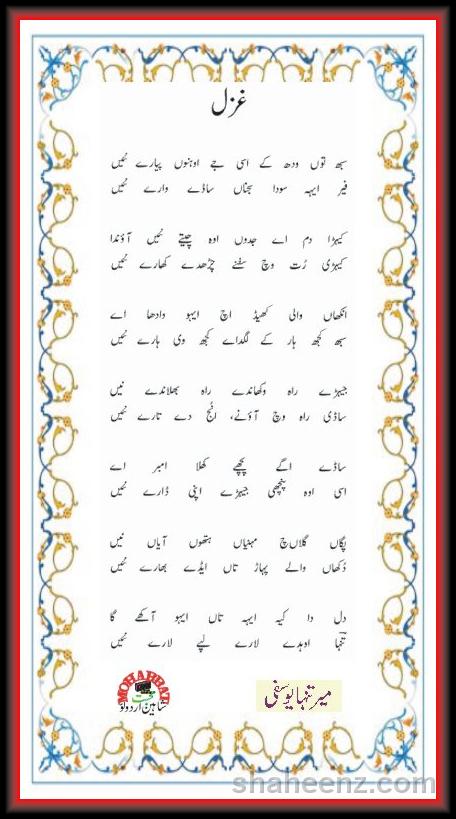 غزل
سبھ توں ودھ کے اسی جے اوہنوں پیارے نئیں
فیر ایہہ سودا سجناں ساڈے وارے نئیں
کیہڑا دم اے جدوں اوہ چیتے نئیں آؤندا
کیہڑی رُت وچ سفنے چڑھدے کھارے نئیں
انکھاں والی کھیڈ اچ ایہو وادھا اے
سبھ کجھ ہار کے لگدااے کجھ وی ہارے نئیں
جیہڑے راہ وکھاندے راہ بھلاندے نیں
ساڈی راہ وچ آؤنے، انُج دے تارے نئیں
ساڈے اگے پچھے کھلا امبر اے
اسی اوہ پنچھی جیہڑے اپنی ڈارے نئیں
پگاں گلاں چ مہنیاں ہتھوں آیاں نیں
دُکھاں والے پہاڑ تاں ایڈے بھارے نئیں
دل دا کیہ ایہہ تاں ایہو آکھے گا
تنہا اوہدے لارے لپے لارے نئیں
میر تنہا یوسفی
MOHABBAT
شاہین اردو
shaheenz.com